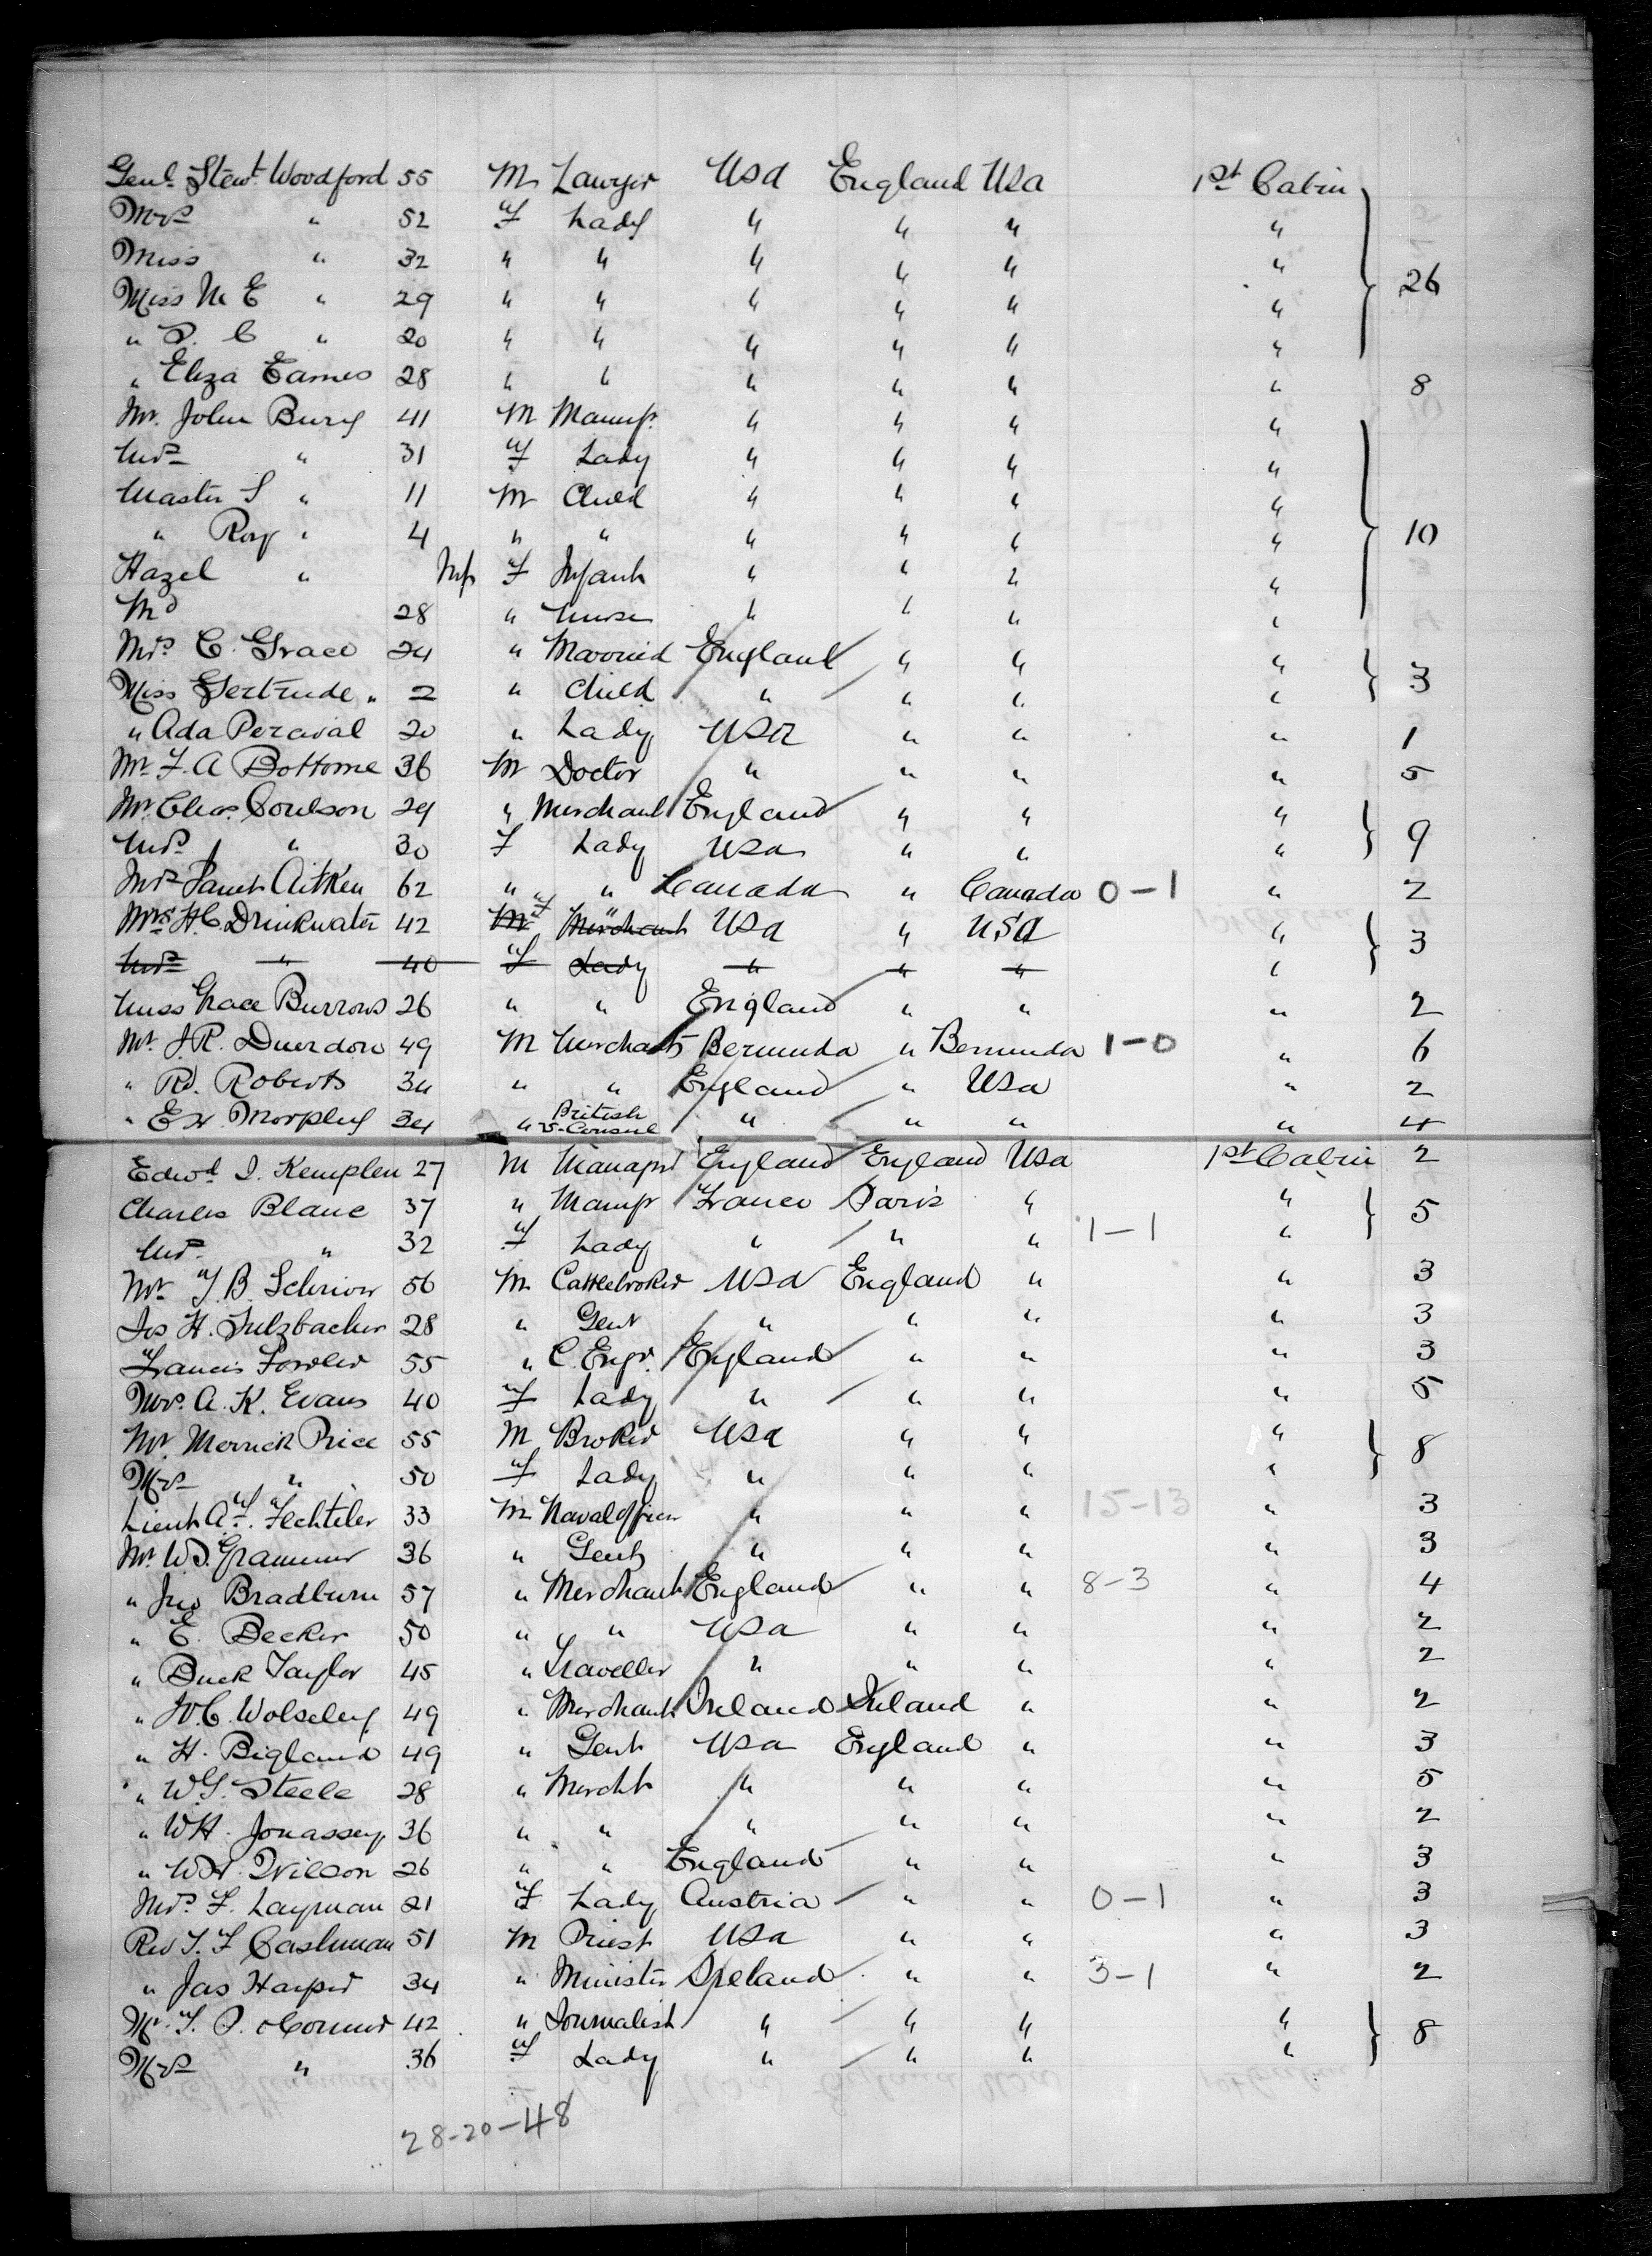 Genl. Stewt. Woodford 55 M Lawyer Usa England Usa 1st Cabin
Mrs " 52 F Lady " " " "
Miss " 32 " " " " " " 26
Miss M E " 29 " " " " " "
" S. C " 20 " " " " " "
" Eliza Eames 28 " " " " " " 8
Mr. John Bury 41 M Manufr. " " " "
Mrs " 31 F Lady " " " "
Master S " 11 M Child " " " "
" Roy " 4 " " " " " " 10
Hazel " Inf F Infant " " " "
Md 28 " Nurse " " " "
Mrs C. Grace 24 " Married England " " "
Miss Gertrude " 2 " Child " " " " 3
" Ada Percival 20 " Lady USA " " " 1
Mr F. A Bottome 36 M Doctor " " " " 5
Mr Chas. Coulson 29 " Merchant England " " "
Mrs " 30 F Lady Usa " " " 9
Mrs Janet Aitken 62 " " Canada " Canada 0-1 " 2
Mrs H. C Drinkwater 42 M F Merchant " Usa " USA " 3
Mrs " 40 F Lady " " " "
Miss Grace Burrows 26 " " England " " " 2
Mr J. R. Duerdon 49 M Merchant Bermuda " Bermuda 1-0 " 6
" Rd. Roberts 34 " " England " Usa " 2
" E H. Morphy 34 " British V-Consul " " " " 4
Edwd J. Kemplen 27 M Manager England England Usa 1st Cabin 2
Charles Blanc 37 " Manufr France Paris " " 5
Mrs. " 32 F Lady " " " 1-1 "
Mr F. B. Schriver 56 M Cattlebroker Usa England " " 3
Jos H. Sulzbacher 28 " Gent " " " " 3
Francis Fowler 55 " C. Engr. England " " " 3
Mrs. A. K. Evans 40 F Lady " " " " 5
Mr Merrick Price 55 M Broker Usa " " " 8
Mrs " 50 F Lady " " " "
Lieut A. F. Fechteler 33 M Naval officer " " " 15-13 " 3
Mr. W. S. Grammer 36 " Gent " " " " 3
" Jno Bradburn 57 " Merchant England " " 8-3 " 4
" E. Becker 50 " " Usa " " " 2
" Buck Taylor 45 " Traveller " " " " 2
" W. C. Wolseley 49 " Merchant Ireland Ireland " " 2
" H. Bigland 49 " Gent Usa England " " 3
" W. G. Steele 28 " Mercht " " " " 5
" W H. Jonassey 36 " " " " " " 2
" W H. Wilson 26 " " England " " " 3
Mrs F. Layman 21 F Lady Austria " " 0-1 " 3
Rev T. F Cashman 51 M Priest Usa " " " 3
" Jas Harper 34 " Minister Ireland " " 3-1 " 2
Mr. T. P. oConnor 42 " Journalist " " " " 8
Mrs " 36 F Lady " " " "
28-20-48